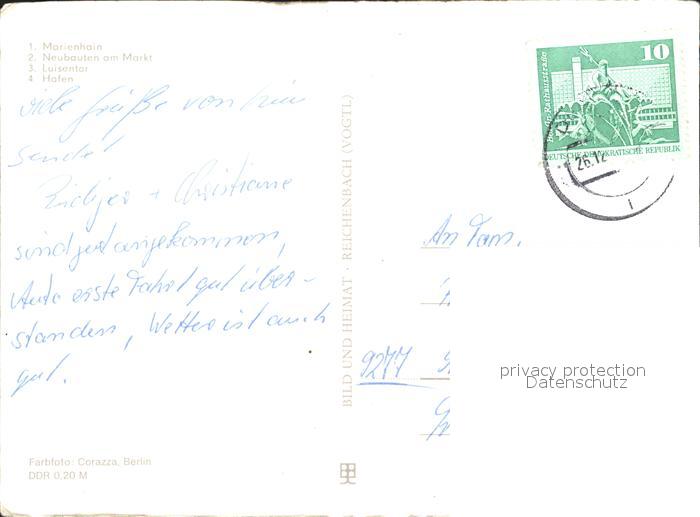 1. Marienhain
2. Neubauten am Markt
3. Luisentor
4. Hafen
viele Grüße von hier
sendet
Rüdiger + Christiane
sind gut angekommen,
Auto erste Fahrt gut über-
standen, Wetter ist auch
gut.
Farbfoto: Corazza, Berlin
DDR 0,20 M
BILD UND HEIMAT · REICHENBACH (VOGTL)
10
DEUTSCHE DEMOKRATISCHE REPUBLIK
26.12
An Fam.
9277
privacy protection
Datenschutz